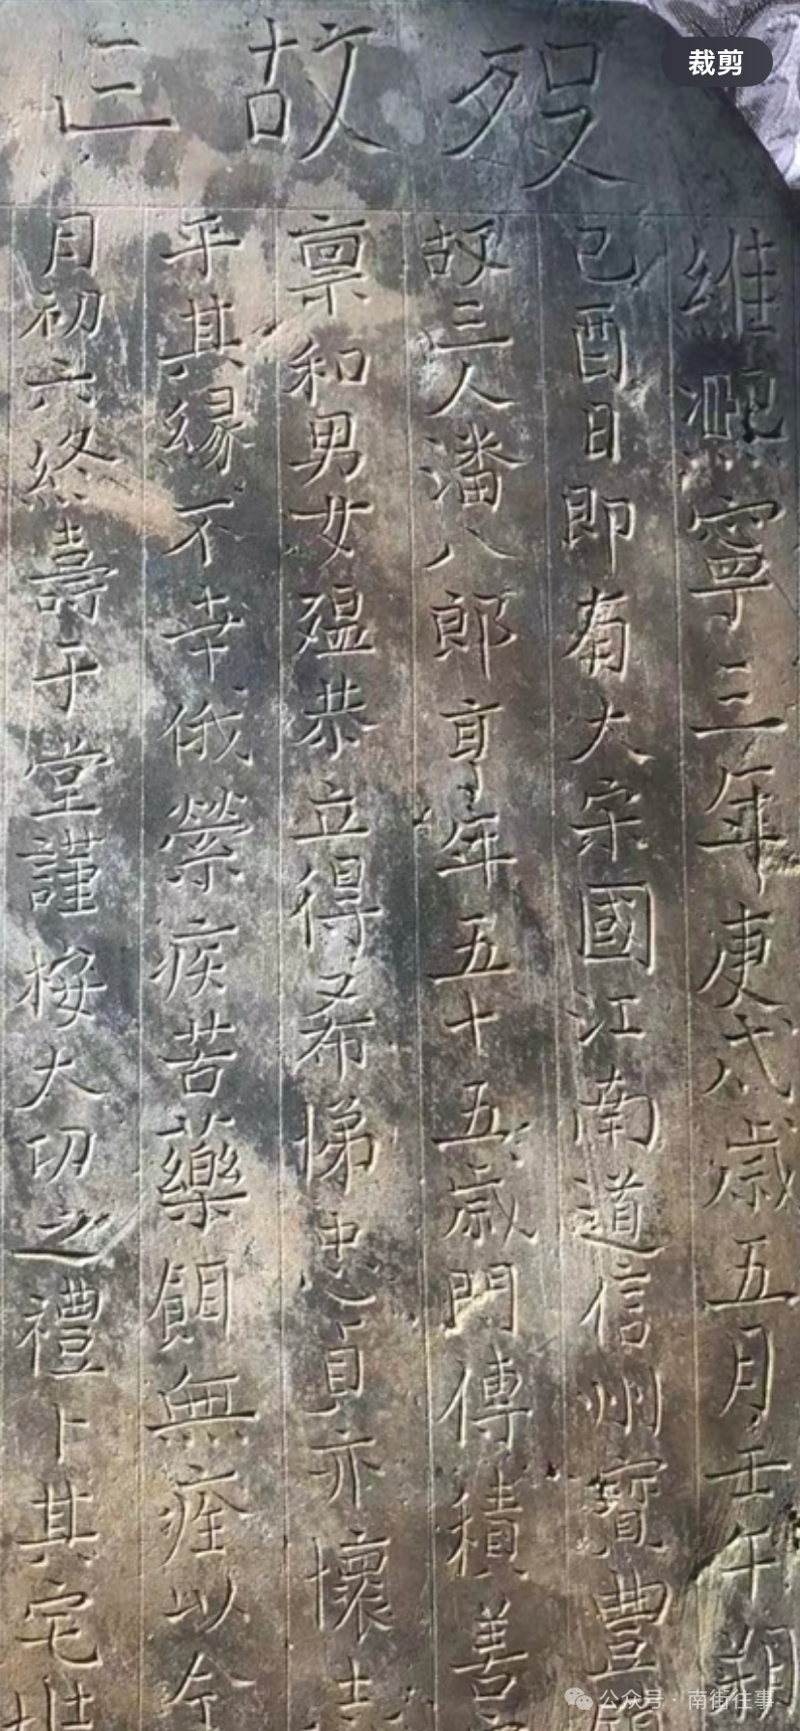 裁剪
歿故亡
維熙寧三年庚戌歲五月壬午朔
己酉日即有大宋國江南道信州寶豐
故亡人潘八郎享年五十五歲門傳積善
稟和男女温恭立得希悌忠貞亦懷
平其緣不幸俄縈疾苦藥餌無痊以今
月初六終壽于堂謹按大切之禮卜其宅
公众号·南街往事